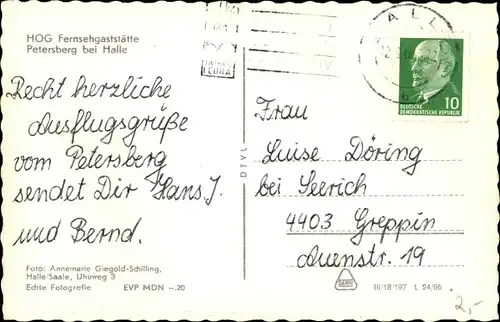 HOG Fernsehgaststätte
Petersberg bei Halle
Recht herzliche
Ausflugsgrüße
vom Petersberg
sendet Dir Hans J.
und Bernd.
Foto: Annemarie Giegold-Schilling,
Halle/Saale, Uhuweg 3
Echte Fotografie EVP MDN –.20
DTVL
HALL
10
DEUTSCHE
DEMOKRATISCHE REPUBLIK
Frau
Luise Döring
bei Seerich
4403 Greppin
Auenstr. 19
III/18/197 L 24/66
2,-